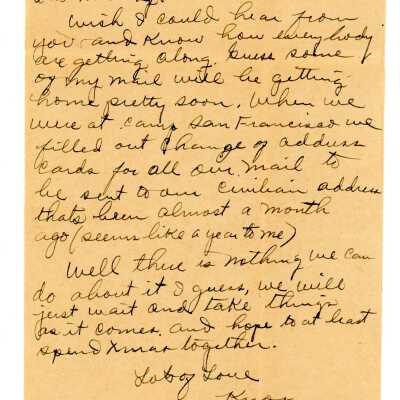 Wish I could hear from
you and know how everybody
are getting along. Guess some
of my mail will be getting
home pretty soon. When we
were at camp San Francisco we
filled out change of address
cards for all our mail to
be sent to our civilian address
thats been almost a month
ago (seems like a year to me)
Well there is nothing we can
do about it I guess, we will
just wait and take things
as it comes. and hope to at least
spend Xmas together.
Lots of Love